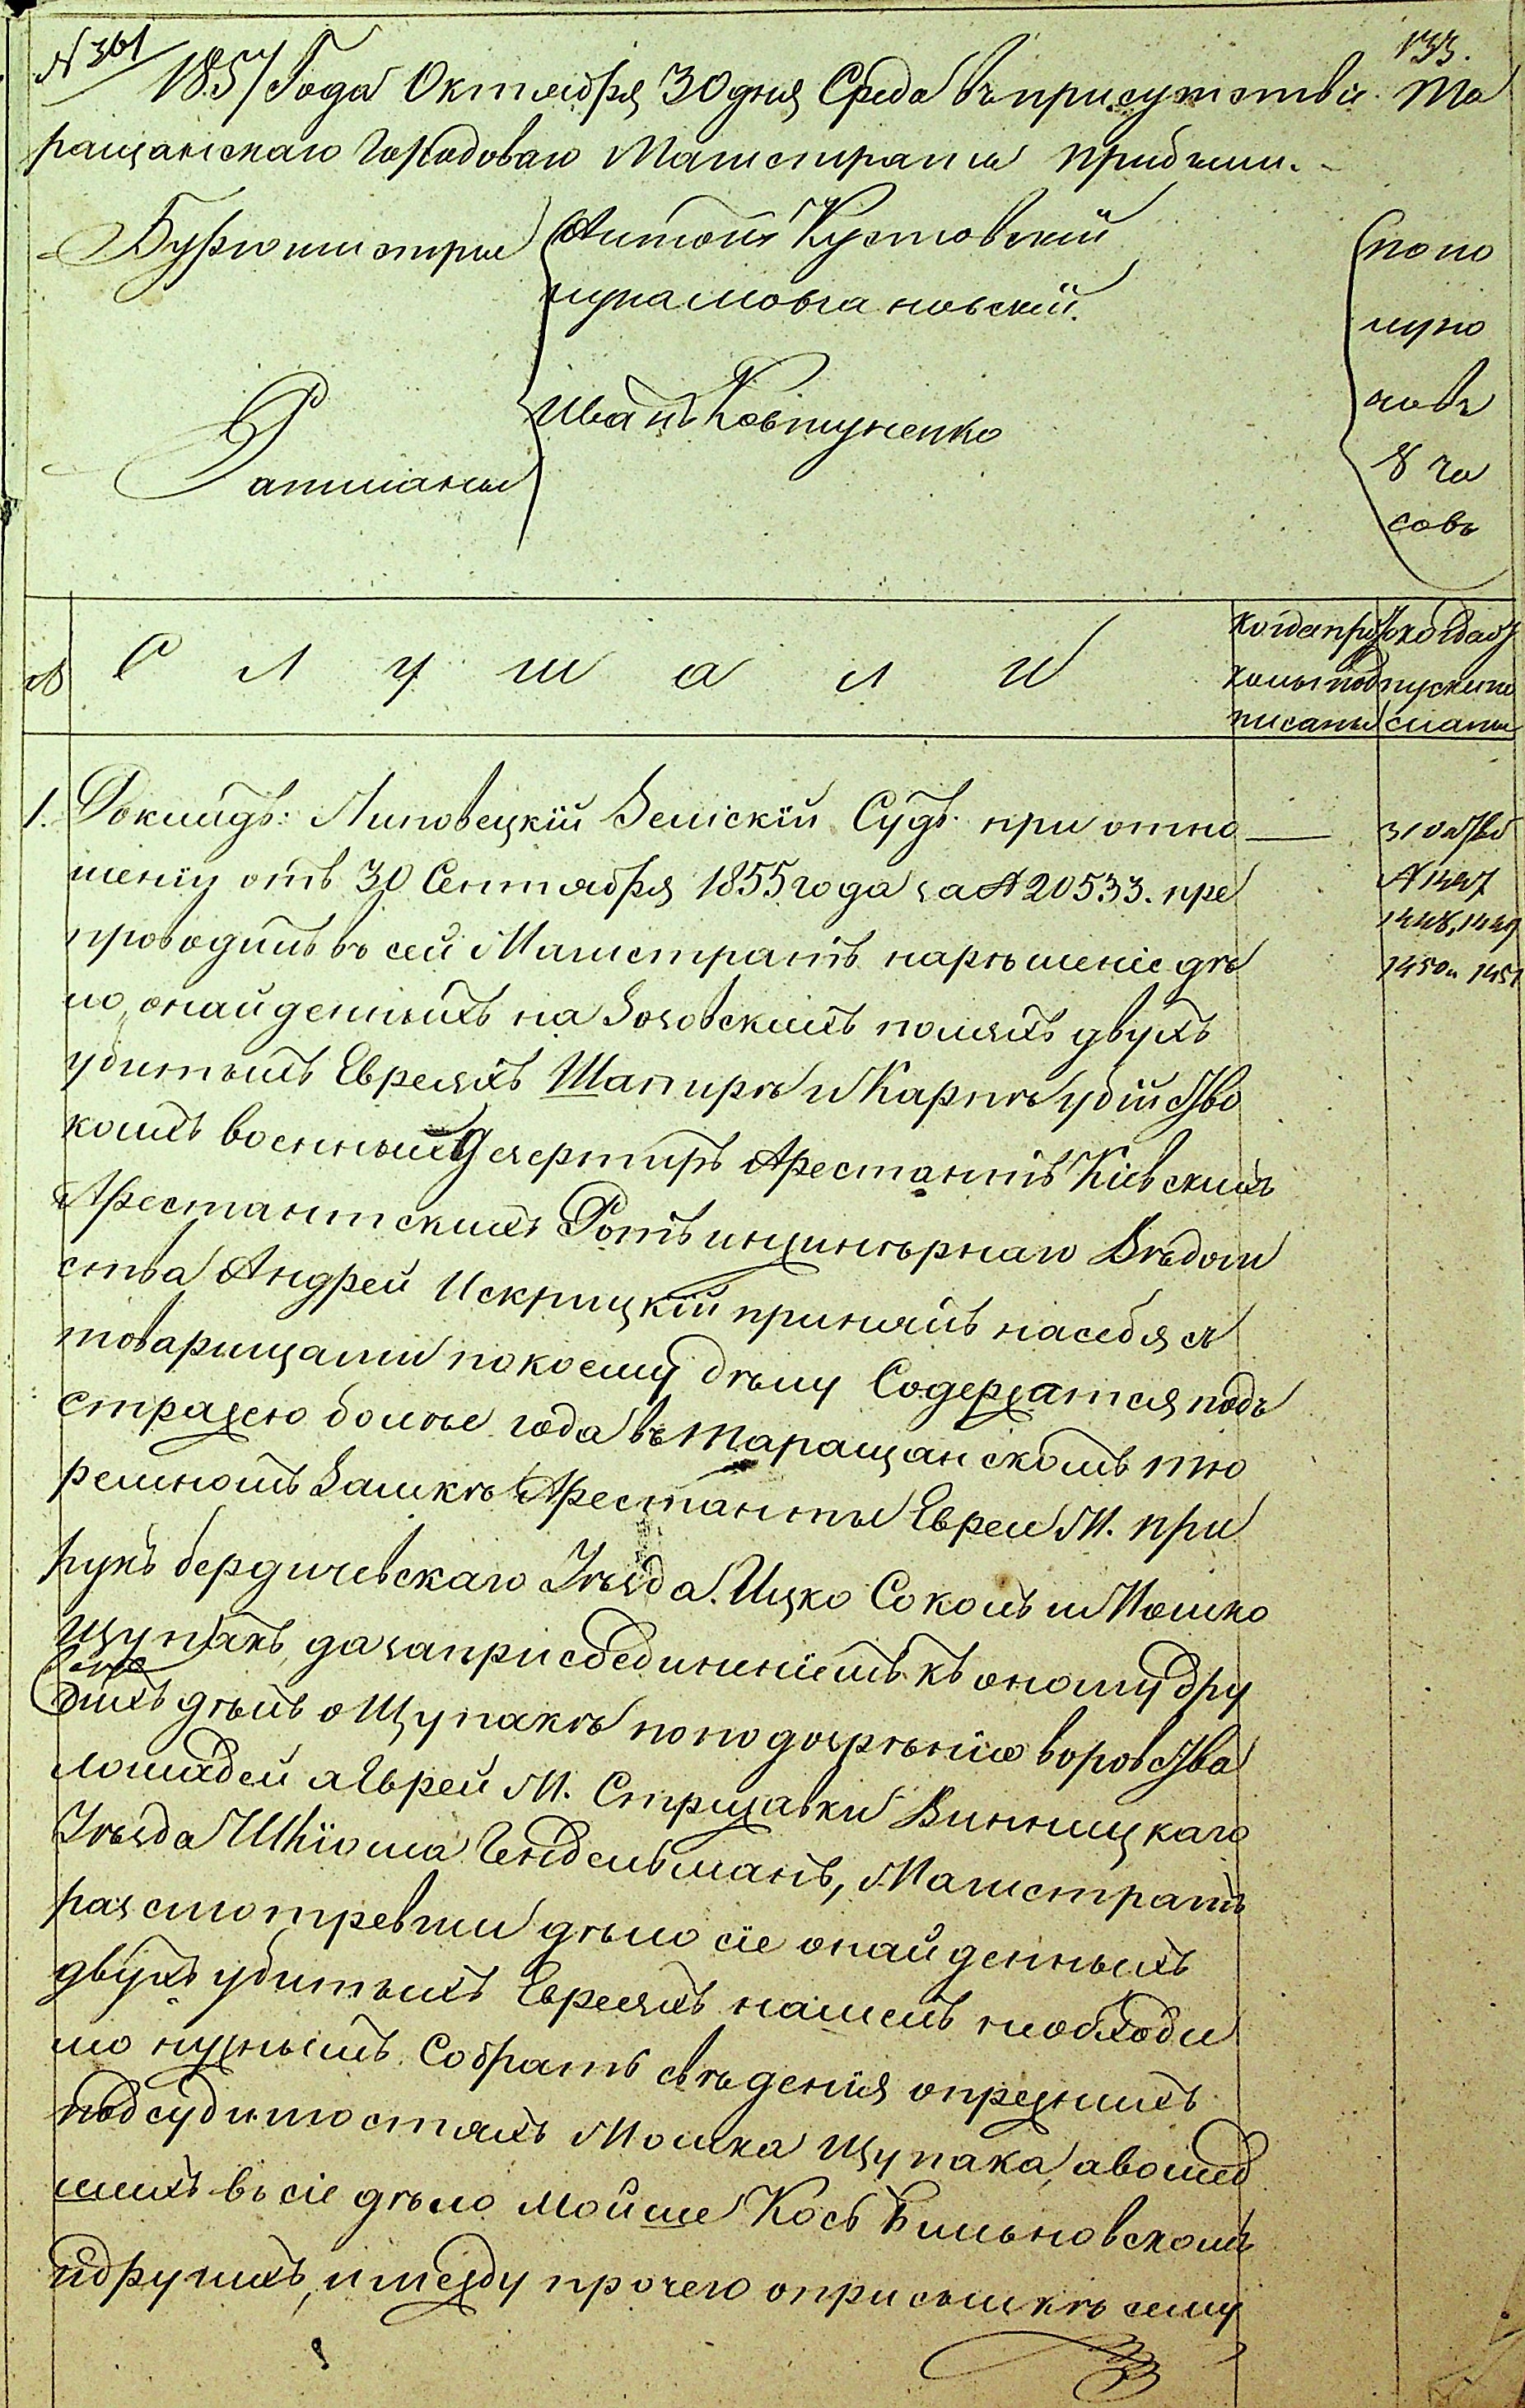 № 361
133.
1857 Года Октября 30 дня Среда въ присутствіе Та
ращанскаго Городоваго Магистрата прибыли.
Бургомистры
Антонъ Кустовскій
Лука Мовчановскій.
Ратманы
Иванъ Ковтуненко
по по
лудно
човъ
8 ча
совъ
№
Слушали
Когда прото
колы под
писаны
Когда от
пуски по
сланы
1. Докладъ: Липовецкій Земскій Судъ при отно
шеніи отъ 30 Сентября 1855 года за № 20533. пре
проводилъ въ сей Магистратъ на рѣшеніе дѣ
ло, о найденныхъ на Зозовскихъ поляхъ двухъ
убитыхъ Евреяхъ Шапирѣ и Карпѣ убійство
коихъ военный дезертиръ Арестантъ Кіевскихъ
Арестантскихъ Ротъ инжинѣрнаго Вѣдом
ства Андрей Искрицкій принялъ на себя съ
товарищами по коему дѣлу Содержатся подъ
стражею болѣе года въ Таращанскомъ тю
ремномъ Замкѣ Арестанты Евреи М. При
лукъ бердичевскаго Уѣзда. Ицко Соколъ и Мошко
Щупакъ, да за присоединеніемъ къ оному дру
гихъ дѣлъ о Щупакѣ по подозрѣнію воровства
лошадей и Еврей М. Стрижавки Винницкаго
Уѣзда Шліома Гендельманъ, Магистратъ
разсмотревши дѣло сіе о найденныхъ
двухъ убитыхъ Евреяхъ нашелъ необходи
мо нужнымъ Собрать свѣденія о прежнихъ
подсудимостяхъ Мошка Щупака, а вошед
шихъ въ сіе дѣло Мойше Кось Вильновскомъ
и другихъ, и между прочего о присылкѣ сему
31 октяб
№ 1447
1448, 1449
1450 и 1451